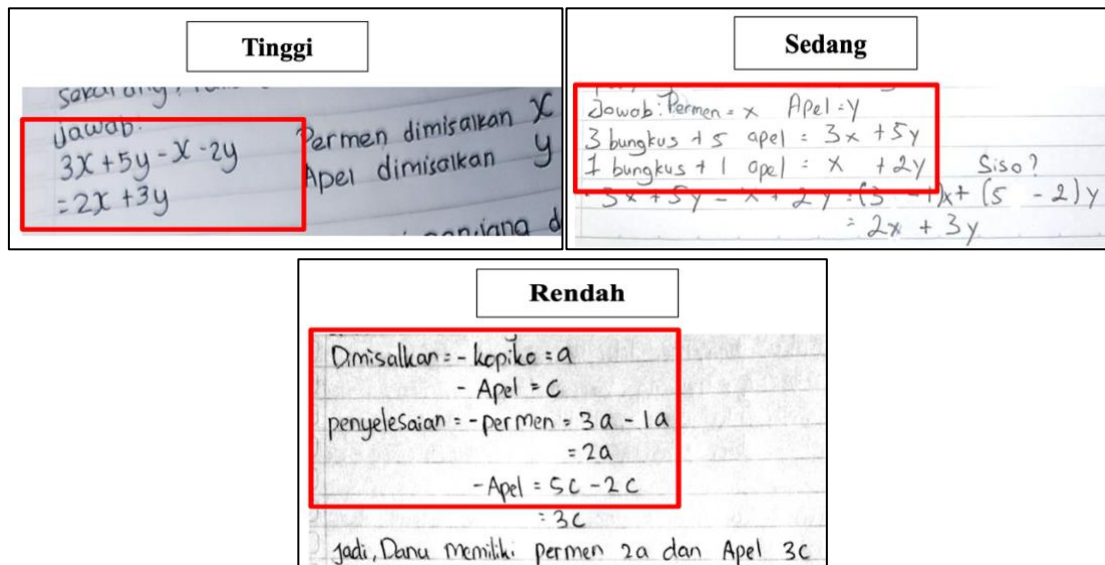 Tinggi
jawab:
3x + 5y - x - 2y
= 2x + 3y
Permen dimisalkan x
Apel dimisalkan y
Sedang
Jawab: Permen = x Apel = y
3 bungkus + 5 apel = 3x + 5y
1 bungkus + 1 apel = x + 2y Siso?
3x + 5y - x + 2y = (3 - 1)x + (5 - 2)y
= 2x + 3y
Rendah
Dimisalkan = - kopiko = a
- Apel = c
penyelesaian = - permen = 3a - 1a
= 2a
- Apel = 5c - 2c
= 3c
jadi, Danu memiliki permen 2a dan Apel 3c